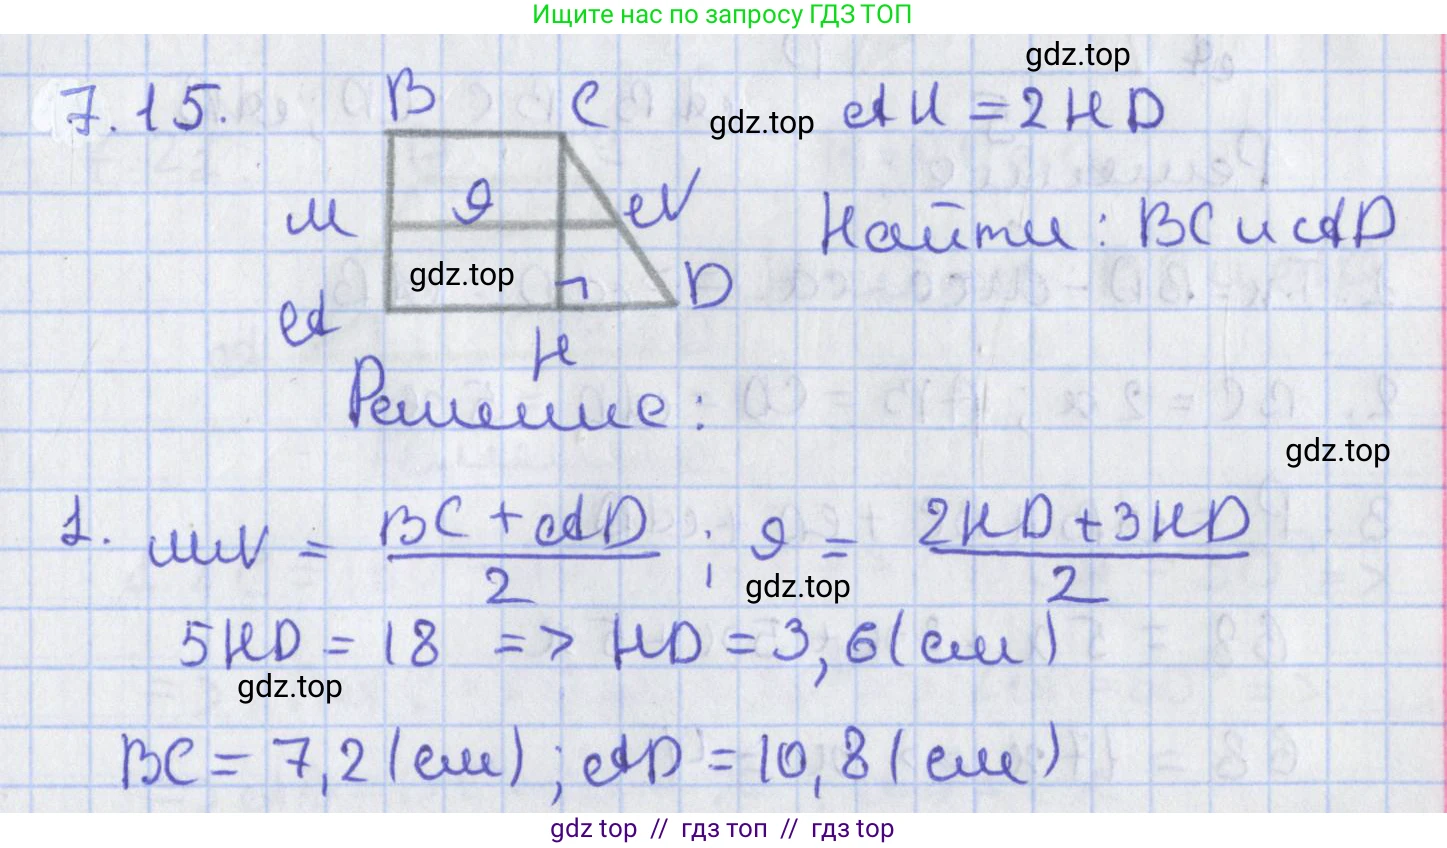 Ищите нас по запросу ГДЗ ТОП
gdz.top
7.15. B C AH = 2HD
gdz.top
M 9 N Найти: BC и AD
gdz.top D
A H
Решение:
gdz.top
1. MN = BC + AD / 2 ; 9 = 2HD + 3HD / 2
gdz.top
5HD = 18 => HD = 3,6 (см)
gdz.top
BC = 7,2 (см) ; AD = 10,8 (см)
gdz top // гдз топ // гдз top